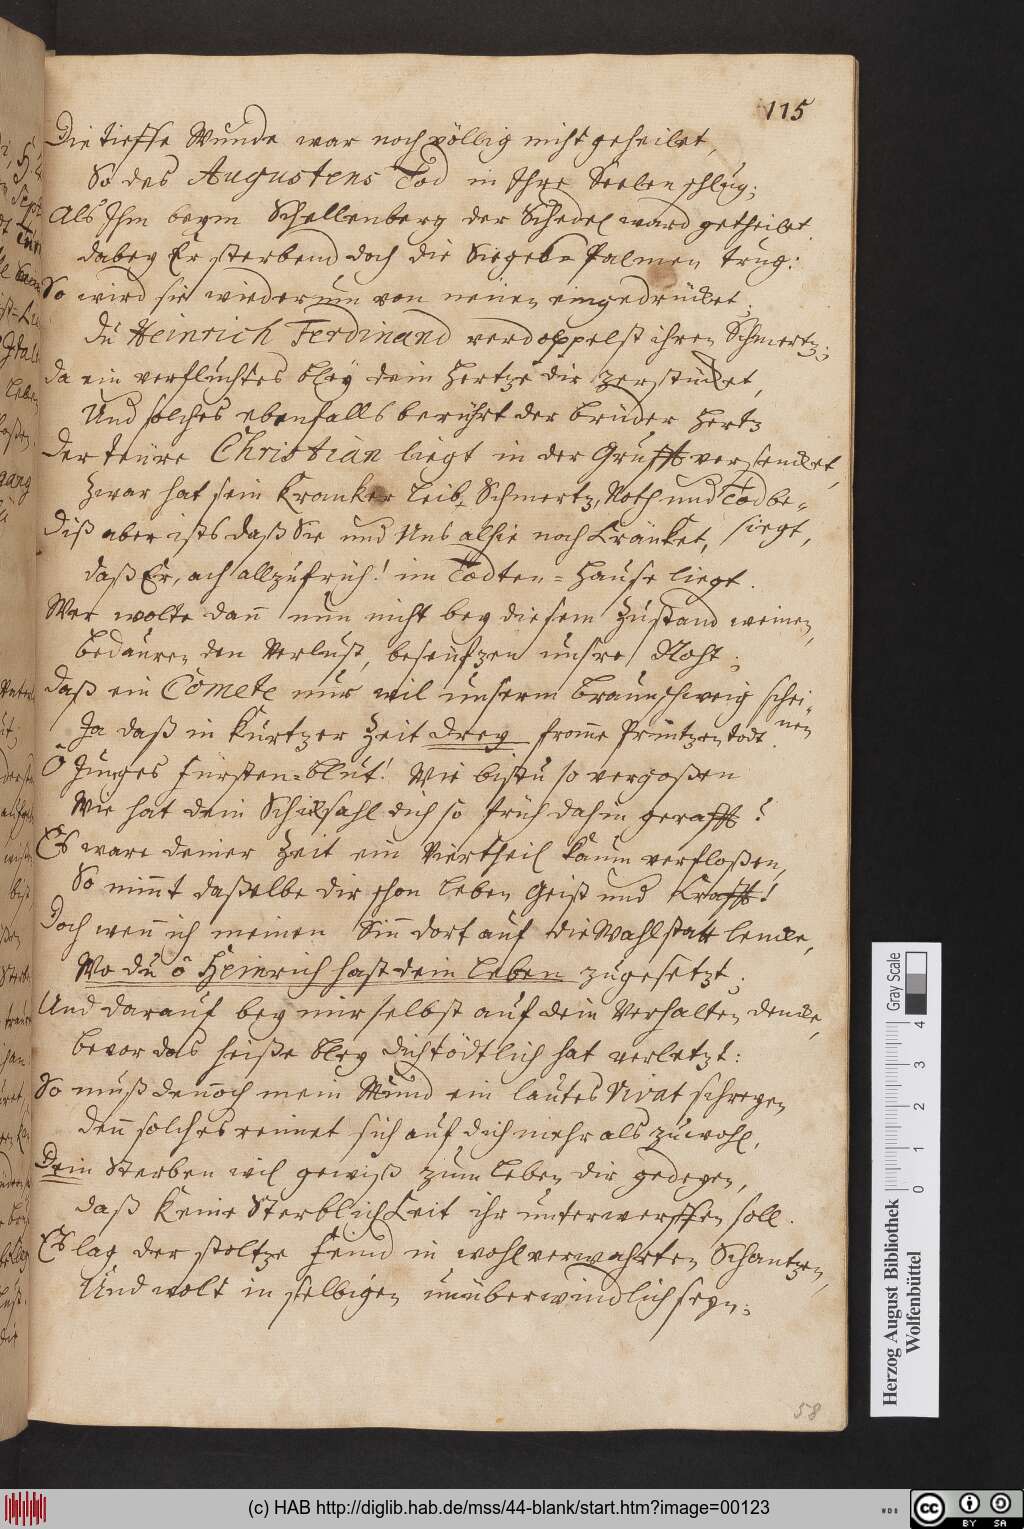 115
Die tieffe Wunde war noch völlig nicht geheilet,
So des Augustens Tod in Ihre Seelen schlug;
Als Ihm beym Schellenberg der Schedel ward getheilet
dabey Er sterbend doch die Sieges-Palmen trug:
So wird sie wiederum von neuen eingedrücket;
Du Heinrich Ferdinand verdoppelst ihren Schmertz;
Da ein verfluchtes Bley dein Hertze dir zerstücket,
Und solches ebenfalls berührt der Brüder Hertz
Der teure Christian liegt in der Grufft versencket,
Zwar hat sein krancker Leib, Schmertz, Noth und Tod be-
siegt,
Diß aber ists daß Sie und Uns alhie noch kräncket,
daß Er, ach allzufrüh! im Todten-Hause liegt.
Wer wolte dann nun nicht bey diesem Zustand weinen,
Bedauren den Verlust, beseufzen unsre Noht;
Daß ein Comete nur wil unserm Braunschweig schei-
nen
Ja daß in kurtzer Zeit drey fromme Printzen todt.
O Junges Fürsten-Blut! Wie bistu so vergoßen
Wie hat dein Schicksahl dich so früh dahin gerafft?
Es ware deiner Zeit ein Viertheil kaum verfloßen,
So nimmt daßelbe dir schon Leben Geist und Krafft!
Doch wenn ich meinen Sinn dort auf die Wahlstatt lencke,
Wo du ô Heinrich hast dein Leben zugesetzt;
Und darauf bey mir selbst auf dein Verhalten dencke,
Bevor das heiße Bley dich tödtlich hat verletzt:
So muß dennoch mein Mund ein lautes Vivat schreyen
denn solches reimet sich auf dich mehr als zu wohl,
Dein Sterben wil gewiß zum Leben dir gedeyen,
daß keine Sterblichkeit ihr unterwerffen soll.
Es lag der stoltze Feind in wohlverwahrten Schantzen,
Und wolt in selbigen unüberwindlich seyn:
58
Gray Scale
0 1 2 3 4
Herzog August Bibliothek
Wolfenbüttel
(c) HAB http://diglib.hab.de/mss/44-blank/start.htm?image=00123
WDB
CC BY SA